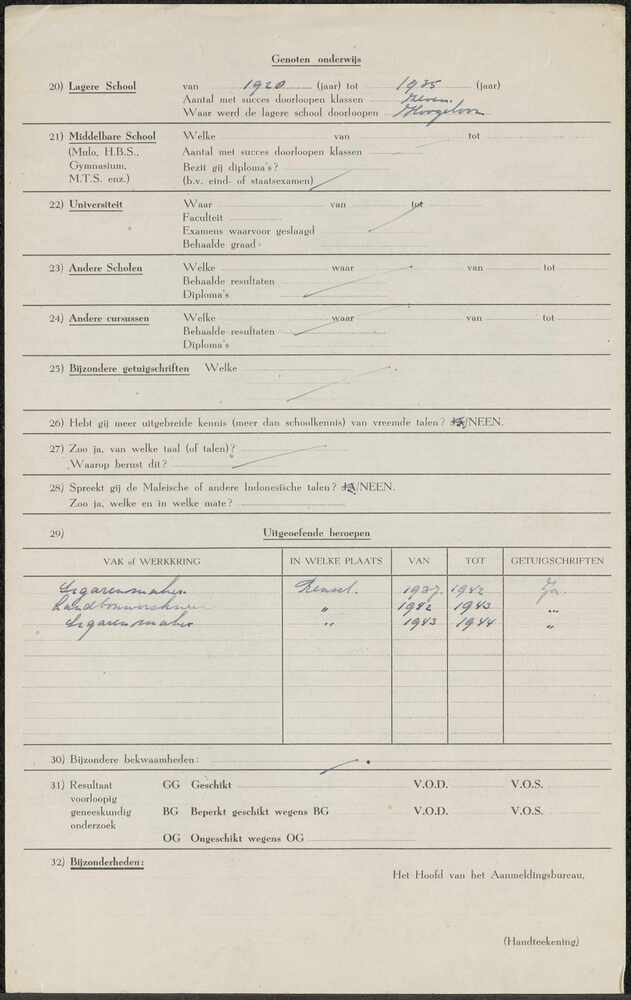 Genoten onderwijs
20) Lagere School van 1920 (jaar) tot 1935 (jaar)
Aantal met succes doorloopen klassen zeven.
Waar werd de lagere school doorloopen Hoogeloon
21) Middelbare School Welke van tot
(Mulo, H.B.S., Aantal met succes doorloopen klassen
Gymnasium, Bezit gij diploma's?
M.T.S. enz.) (b.v. eind- of staatsexamen)
22) Universiteit Waar van tot
Faculteit
Examens waarvoor geslaagd
Behaalde graad:
23) Andere Scholen Welke waar van tot
Behaalde resultaten
Diploma's
24) Andere cursussen Welke waar van tot
Behaalde resultaten
Diploma's
25) Bijzondere getuigschriften Welke
26) Hebt gij meer uitgebreide kennis (meer dan schoolkennis) van vreemde talen? JA/NEEN.
27) Zoo ja, van welke taal (of talen)?
Waarop berust dit?
28) Spreekt gij de Maleische of andere Indonesische talen? JA/NEEN.
Zoo ja, welke en in welke mate?
29) Uitgeoefende beroepen
VAK of WERKKRING IN WELKE PLAATS VAN TOT GETUIGSCHRIFTEN
Sigarenmaker Reusel. 1937. 1942 Ja.
" 1942 1943 "
Sigarenmaker " 1943 1944 "
30) Bijzondere bekwaamheden:
31) Resultaat GG Geschikt V.O.D. V.O.S.
voorloopig
geneeskundig BG Beperkt geschikt wegens BG V.O.D. V.O.S.
onderzoek
OG Ongeschikt wegens OG
32) Bijzonderheden:
Het Hoofd van het Aanmeldingsbureau,
(Handteekening)